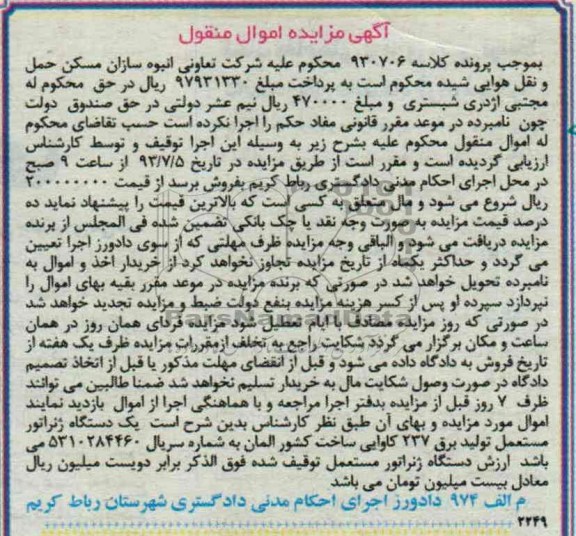 آگهی مزایده اموال منقول
بموجب پرونده کلاسه ۹۳۰۷۰۶ محکوم علیه شرکت تعاونی انبوه سازان مسکن حمل
و نقل هوایی شیده محکوم است به پرداخت مبلغ ۹۷۹۳۱۳۳۰ ریال در حق محکوم له
مجتبی اژدری شبستری و مبلغ ۴۷۰۰۰۰ ریال نیم عشر دولتی در حق صندوق دولت
چون نامبرده در موعد مقرر قانونی مفاد حکم را اجرا نکرده است حسب تقاضای محکوم
له اموال منقول محکوم علیه بشرح زیر به وسیله این اجرا توقیف و توسط کارشناس
ارزیابی گردیده است و مقرر است از طریق مزایده در تاریخ ۹۳/۷/۵ از ساعت ۹ صبح
در محل اجرای احکام مدنی دادگستری رباط کریم بفروش برسد از قیمت ۲۰۰۰۰۰۰۰۰
ریال شروع می شود و مال متعلق به کسی است که بالاترین قیمت را پیشنهاد نماید ده
درصد قیمت مزایده به صورت وجه نقد یا چک بانکی تضمین شده فی المجلس از برنده
مزایده دریافت می شود و الباقی وجه مزایده ظرف مهلتی که از سوی دادورز اجرا تعیین
می گردد و حداکثر یکماه از تاریخ مزایده تجاوز نخواهد کرد از خریدار اخذ و اموال به
نامبرده تحویل خواهد شد در صورتی که برنده مزایده در موعد مقرر بقیه بهای اموال را
نپردازد سپرده او پس از کسر هزینه مزایده بنفع دولت ضبط و مزایده تجدید خواهد شد
در صورتی که روز مزایده مصادف با ایام تعطیل شود مزایده فردای همان روز در همان
ساعت و مکان برگزار می گردد شکایت راجع به تخلف ازمقررات مزایده ظرف یک هفته از
تاریخ فروش به دادگاه داده می شود و قبل از انقضای مهلت مذکور یا قبل از اتخاذ تصمیم
دادگاه در صورت وصول شکایت مال به خریدار تسلیم نخواهد شد ضمنا طالبین می توانند
ظرف ۷ روز قبل از مزایده بدفتر اجرا مراجعه و با هماهنگی اجرا از اموال بازدید نمایند
اموال مورد مزایده و بهای آن طبق نظر کارشناس بدین شرح است یک دستگاه ژنراتور
مستعمل تولید برق ۲۳۷ کاوایی ساخت کشور المان به شماره سریال ۵۳۱۰۲۸۴۴۶۰ می
باشد ارزش دستگاه ژنراتور مستعمل توقیف شده فوق الذکر برابر دویست میلیون ریال
معادل بیست میلیون تومان می باشد
م الف ۹۷۴ دادورز اجرای احکام مدنی دادگستری شهرستان رباط کریم
۲۲۴۹